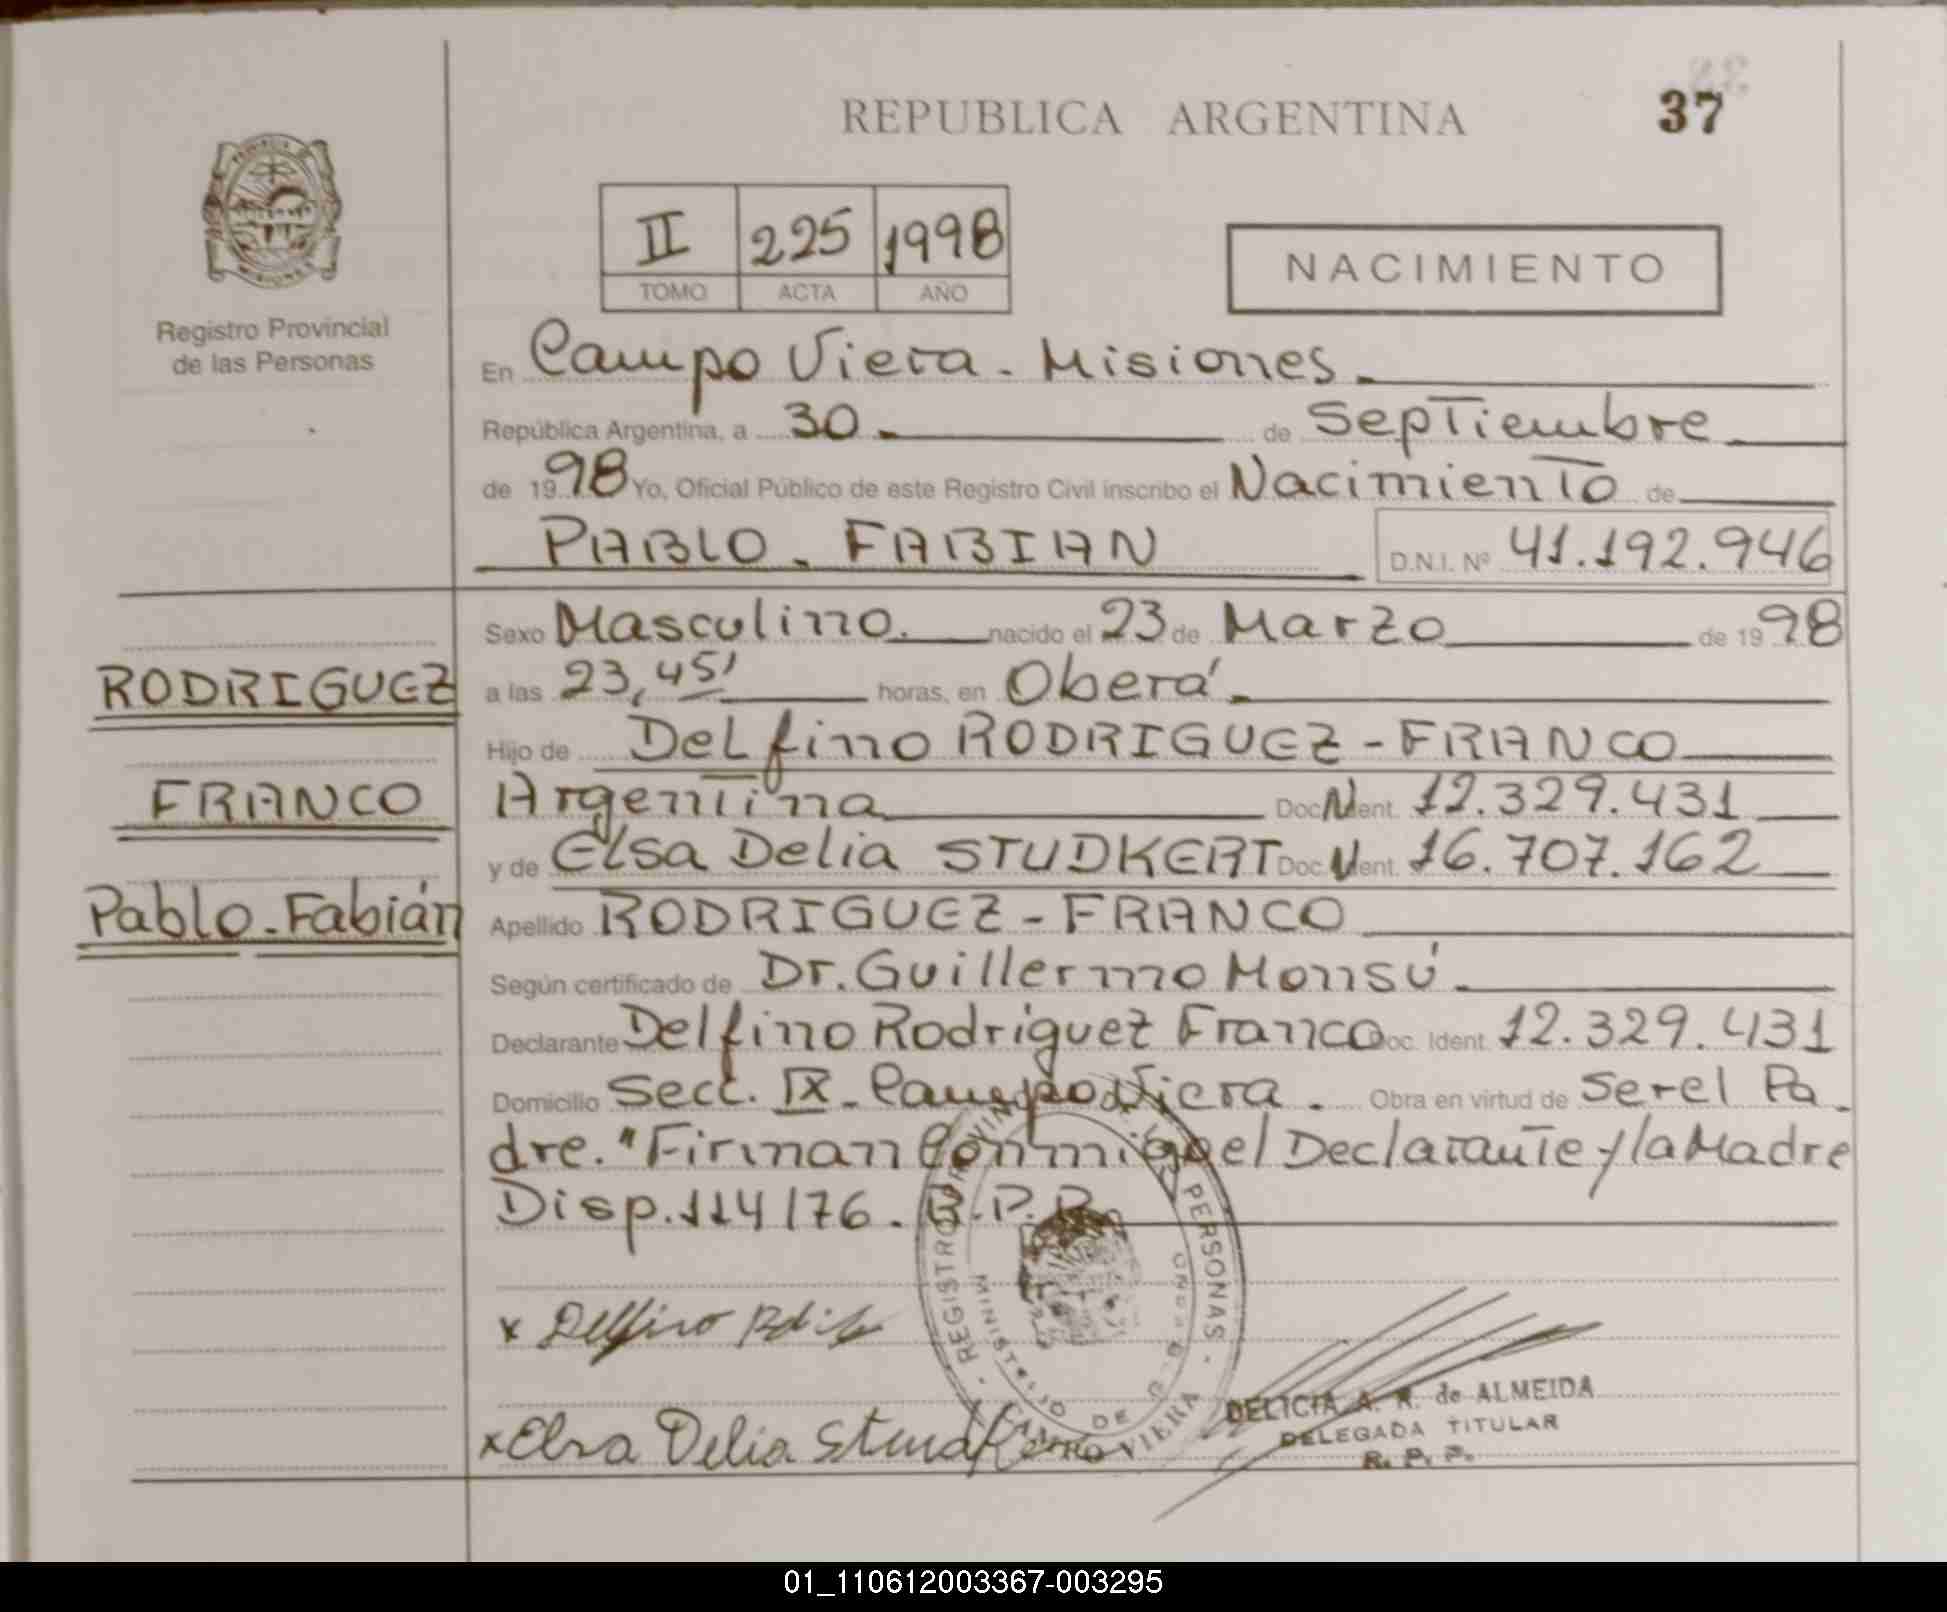 REPUBLICA ARGENTINA
37
II 225 1998
TOMO ACTA AÑO
NACIMIENTO
Registro Provincial
de las Personas
En Campo Viera - Misiones.
República Argentina, a 30. de Septiembre
de 1998 Yo, Oficial Público de este Registro Civil inscribo el Nacimiento de
PABLO - FABIAN D.N.I. Nº 41.192.946
Sexo Masculino. nacido el 23 de Marzo de 1998
RODRIGUEZ
a las 23,45' horas, en Oberá.
Hijo de Delfino RODRIGUEZ - FRANCO
FRANCO
Argentina Doc. Ident. 12.329.431
y de Elsa Delia STUDKERT Doc. Ident. 16.707.162
Pablo - Fabián
Apellido RODRIGUEZ - FRANCO
Según certificado de Dr. Guillermo Monsú.
Declarante Delfino Rodriguez Franco Doc. Ident. 12.329.431
Domicilio Secc. IX - Campo Viera. Obra en virtud de Ser el Pa
dre. "Firman Conmigo el Declarante y la Madre
Disp. 114/76. R.P.P.
REGISTRO PROVINCIAL DE LAS PERSONAS - CAMPO VIERA
MINISTERIO DE
x Delfino
x Elsa Delia
DELICIA A. R. de ALMEIDA
DELEGADA TITULAR
R. P. P.
01_110612003367-003295